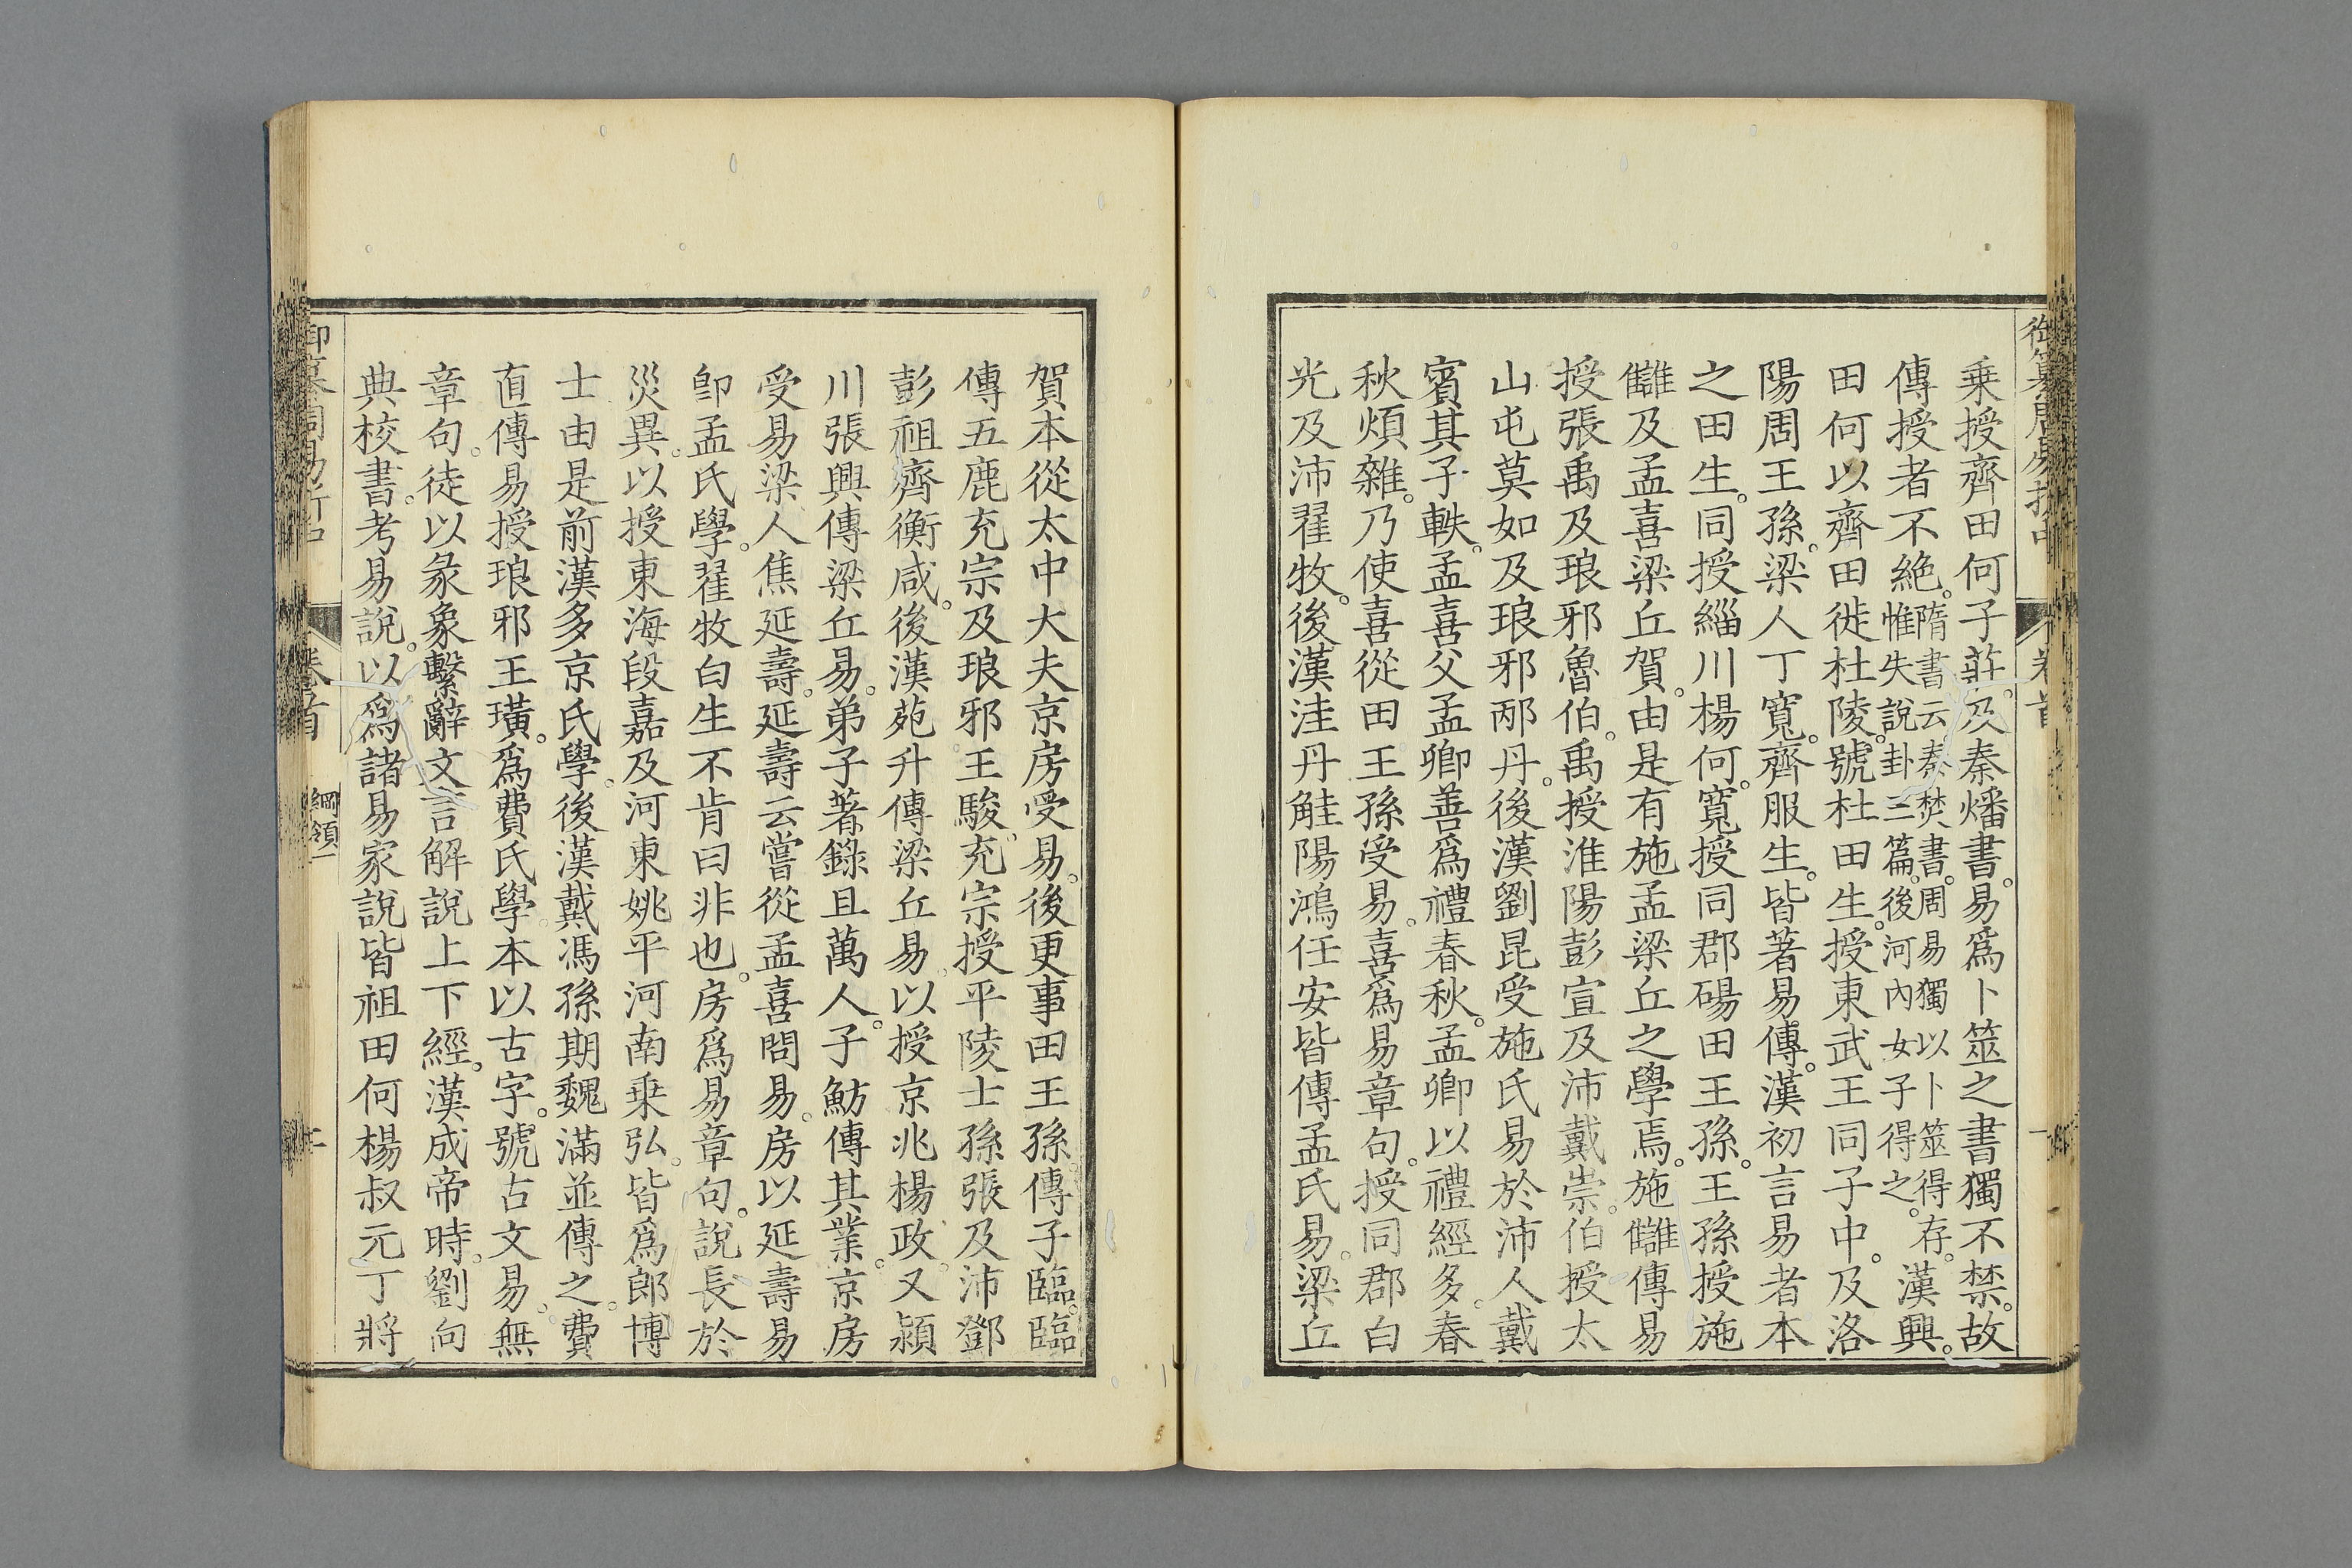 御纂周易折中
卷首
一
乗授齊田何子莊及秦燔書。易爲卜筮之書獨不禁。故
傳授者不絶。隋書云秦焚書。周易獨以卜筮得存。惟失說卦三篇。後河內女子得之。漢興。
田何以齊田徙杜陵。號杜田生。授東武王同子中。及洛
陽周王孫。梁人丁寬。齊服生。皆著易傳。漢初言易者本
之田生。同授緇川楊何。寬授同郡碭田王孫。王孫授施
讎及孟喜梁丘賀。由是有施孟梁丘之學焉。施讎傳易
授張禹及琅邪魯伯。禹授淮陽彭宣及沛戴崇。伯授太
山屯莫如及琅邪邴丹。後漢劉昆受施氏易於沛人戴
賓其子軼。孟喜父孟卿善爲禮春秋。孟卿以禮經多。春
秋煩雜。乃使喜從田王孫受易。喜爲易章句。授同郡白
光及沛翟牧。後漢洼丹觟陽鴻任安皆傳孟氏易。梁丘
賀本從太中大夫京房受易。後更事田王孫。傳子臨。臨
傳五鹿充宗及琅邪王駿。充宗授平陵士孫張及沛鄧
彭祖齊衡咸。後漢范升傳梁丘易。以授京兆楊政。又潁
川張興傳梁丘易。弟子著錄且萬人。子魴傳其業。京房
受易梁人焦延壽。延壽云嘗從孟喜問易。房以延壽易
卽孟氏學。翟牧白生不肯曰非也。房爲易章句。說長於
災異。以授東海段嘉及河東姚平河南乗弘。皆爲郎博
士由是前漢多京氏學。後漢戴馮孫期魏滿並傳之。費
直傳易授琅邪王璜。爲費氏學。本以古字。號古文易。無
章句。徒以彖象繫辭文言解說上下經。漢成帝時。劉向
典校書。考易說。以爲諸易家說皆祖田何楊叔元丁將
御纂周易折中
卷首
綱領一
二